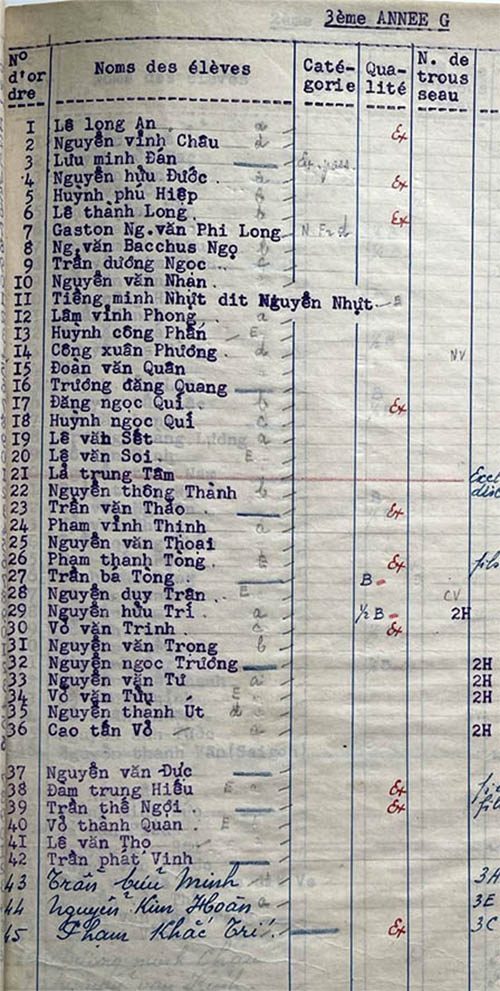 3ème ANNEE G
Nº d'or dre | Noms des élèves | Caté- gorie | Qua- lité | N. de trous seau
I Lê long An a Ex
2 Nguyễn vĩnh Châu d
3 Lưu minh Đán Ex. pass.
4 Nguyễn hữu Đước Ex
5 Huỳnh phú Hiệp
6 Lê thành Long Ex
7 Gaston Ng.văn Phi Long
8 Ng.văn Bacchus Ngọ
9 Trần dướng Ngọc c
IO Nguyễn văn Nhàn
II Tiếng minh Nhựt dit Nguyễn Nhựt E
I2 Lâm vĩnh Phong a
I3 Huỳnh công Phấn E
I4 Công xuân Phướng d NV
I5 Đoàn văn Quân
I6 Trướng đăng Quang
I7 Đặng ngọc Quí b Ex
I8 Huỳnh ngọc Quí c
I9 Lê văn Sết a
20 Lê văn Soi E
I2I Lả trung Tâm Excl disc
22 Nguyễn thông Thành b
23 Trần văn Thảo Ex
24 Phạm vĩnh Thinh a
25 Nguyễn văn Thoại
26 Phạm thanh Tòng E Ex fils
27 Trần bá Tòng B
28 Nguyễn duy Trân E CV
29 Nguyễn hữu Trí a ½ B 2H
30 Võ văn Trinh c Ex
3I Nguyễn văn Trọng b
32 Nguyễn ngọc Trướng 2H
33 Nguyễn văn Tư a 2H
34 Võ văn Tửu E 2H
35 Nguyễn thành Út d
36 Cao tấn Vỏ a 2H
37 Nguyễn văn Đực
38 Đàm trung Hiếu E Ex
39 Trần thế Ngởi Ex
40 Võ thành Quan E
4I Lê văn Thọ
42 Trần phát Vinh
43 Trần bửu Minh 3H
44 Nguyễn Kim Hoàn 3E
45 Phạm Khắc Trí Ex 3C